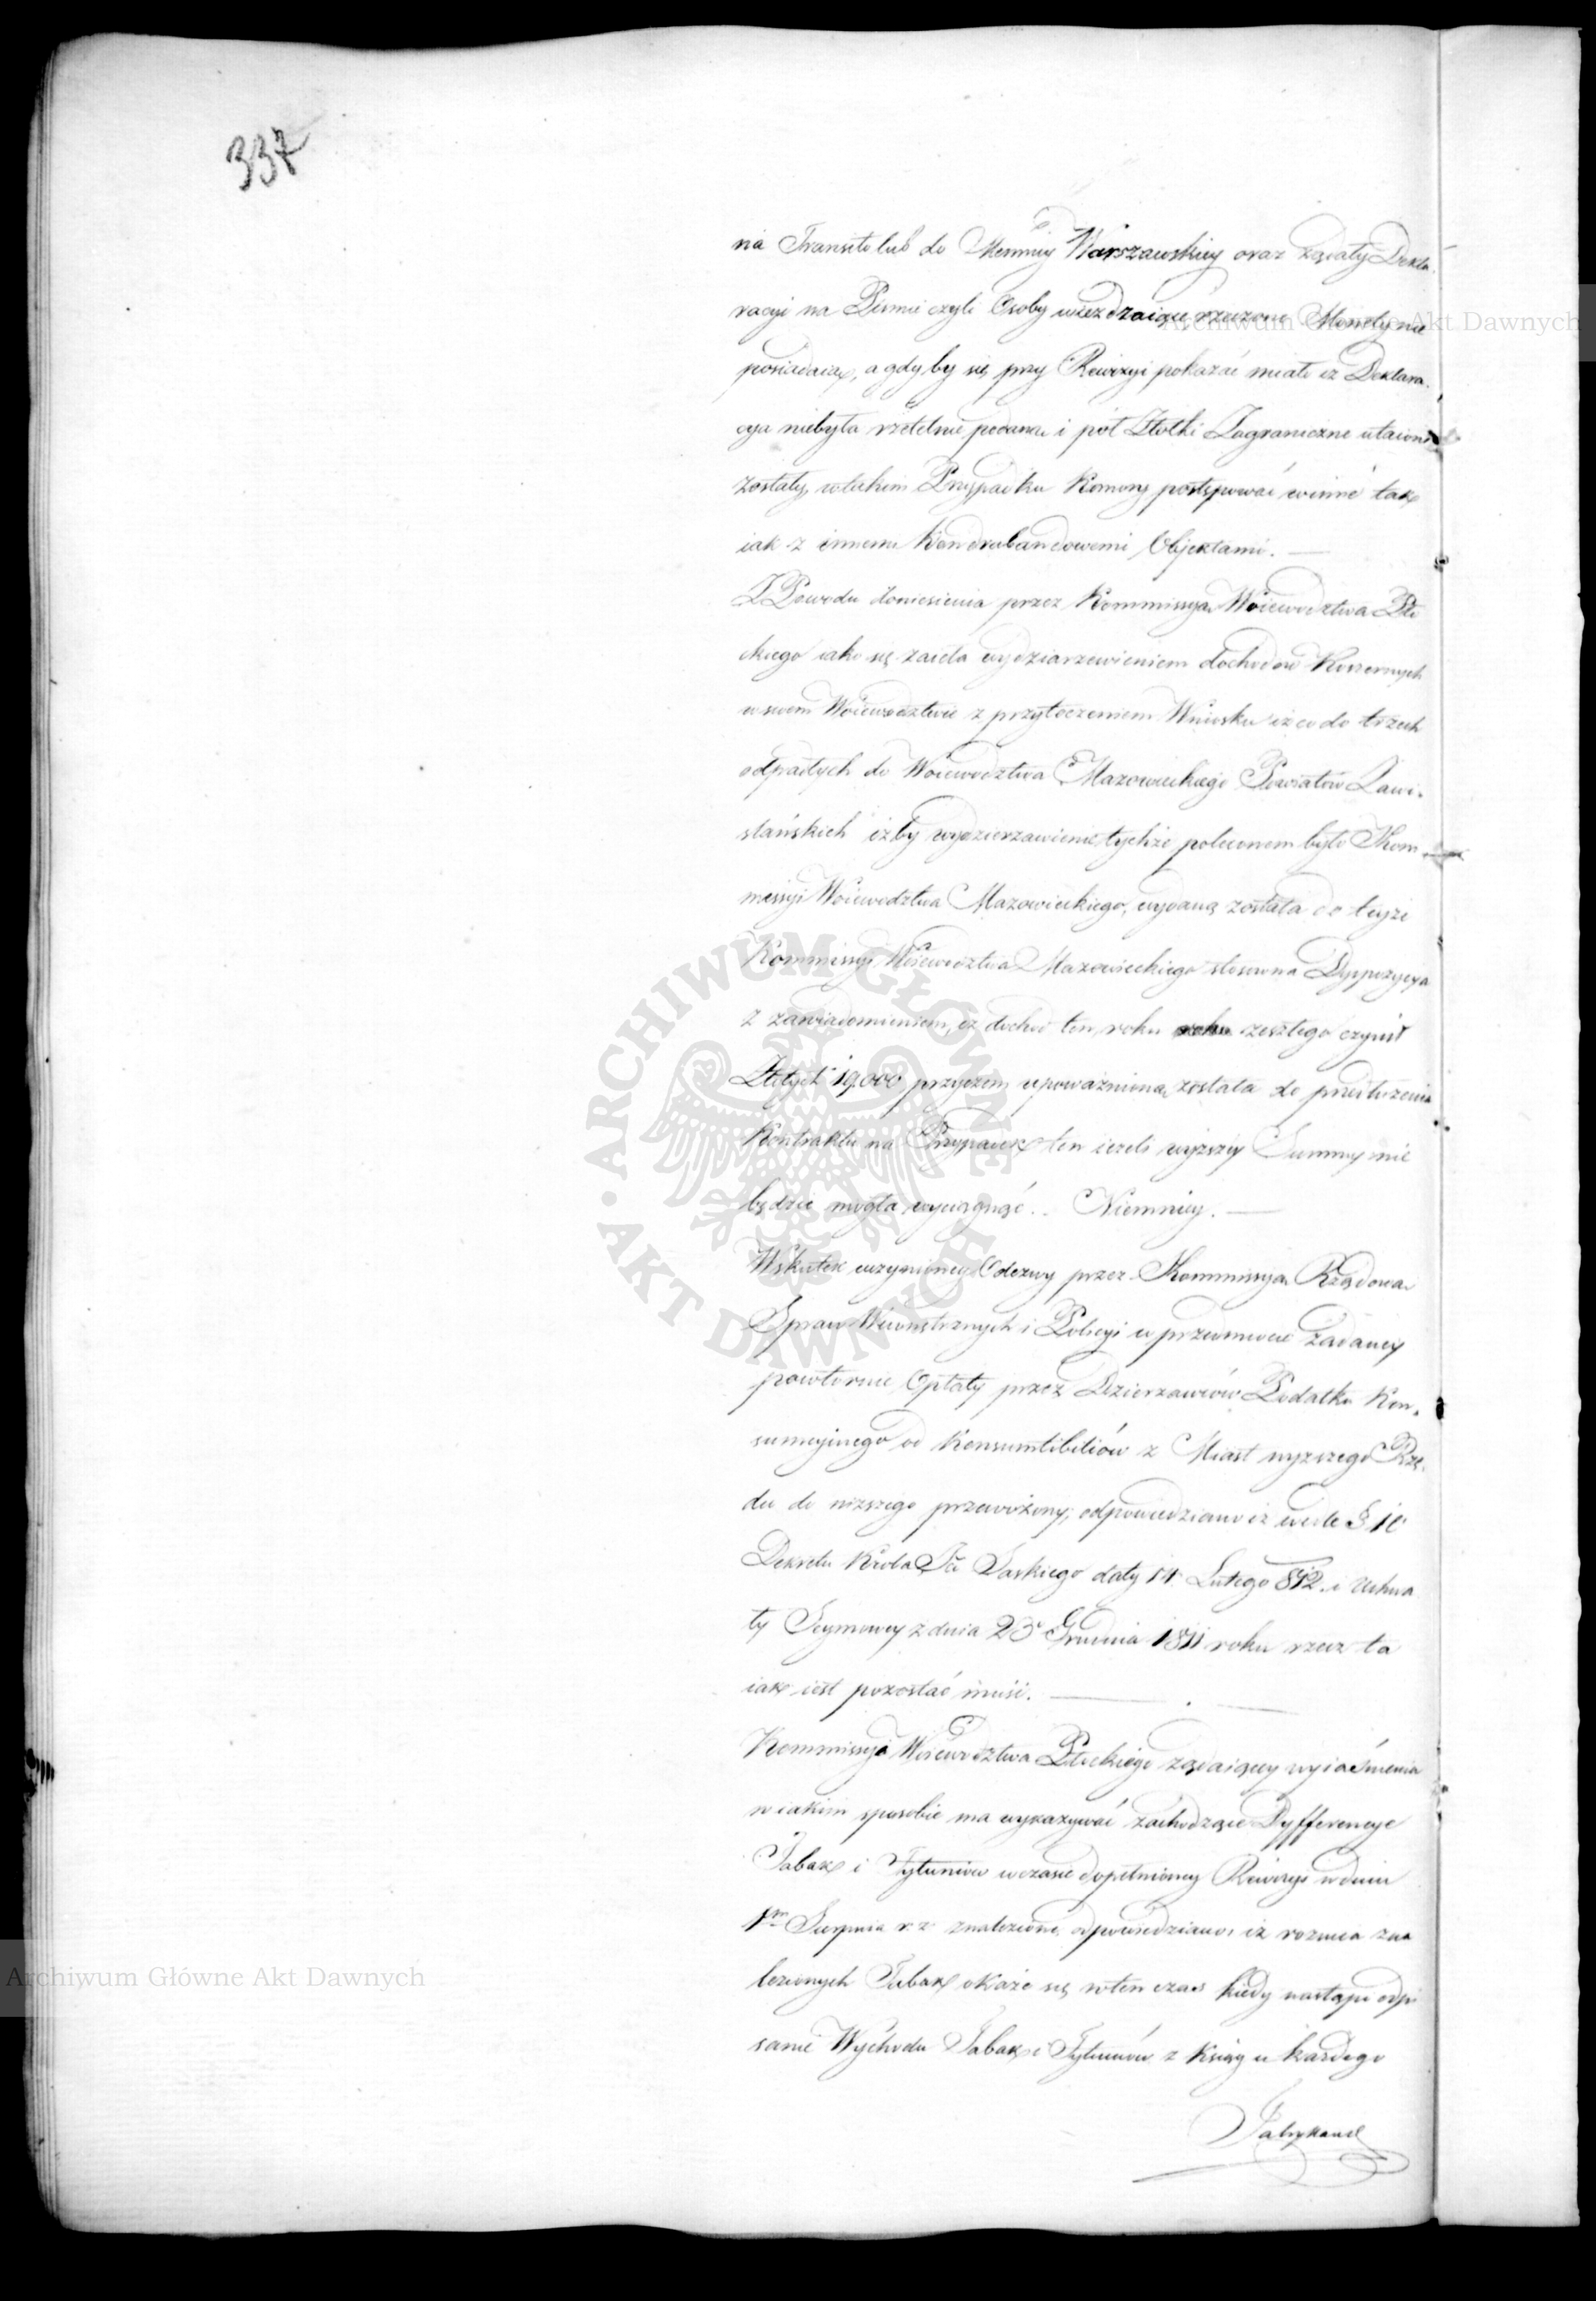 337
na Transito lub do Mennicy Warszawskiey oraz żądały Dekla-
racyi na Pismie czyli Osoby wieżdzaiące rzeczone Monety nie
posiadaią, a gdyby się przy Rewizyi pokazać miało iż Deklara-
cya niebyła rzetelnie podana i pół Złotki Zagraniczne utaione
zostały, w takim Przypadku Komory postępować winne tak
iak z innemi Kondrabandowemi Objektami. —
Z Powodu doniesienia przez Kommissyą Woiewodztwa Pło
ckiego iako się zaięła wydzierzawieniem dochodow Koszernych
w swem Woiewodztwie z przytoczeniem Wniosku iż co do trzech
odpadłych do Woiewodztwa Mazowieckiego Powiatów Zawi-
ślańskich iżby wydzierzawienie tychże poleconem było Kom-
missyi Woiewodztwa Mazowieckiego, wydaną została do teyże
Kommissyi Woiewodztwa Mazowieckiego stosowna Dyspozycya
z zawiadomieniem, iż dochod ten roku zeszłego czynił
Złotych 19.000 przyczem upoważniona została do przedłużenia
Kontraktu na Przypadek ten ieżeli wyższey Summy nie
będzie mogła wyciągnąć. — Niemniey. —
Wskutek uczynioney Odezwy przez Kommissyą Rządową
Spraw Wewnętrznych i Policyi w przedmiocie żądaney
powtornie Opłaty przez Dzierzawców Podatku Kon-
sumcyinego od Konsumtibiliów z Miast wyzszego Rzę-
du do nizszego przewożony, odpowiedziano iż wedle § 10
Dekretu Krola Jci Saskiego daty 14 Lutego 812 i Uchwa
ły Seymowey z dnia 23 Grudnia 1811 roku rzecz ta
iak iest pozostać musi. —
Kommissyi Woiewodztwa Płockiego żądaiącey wyiaśnienia
w iakim sposobie ma wykazywać zachodzące Dyfferencye
Tabak i Tytuniów w czasie dopełnioney Rewizyi w dniu
1m Sierpnia r. z. znalezione, odpowiedziano, iż roznica zna
lezionych Tabak okaże się wten czas kiedy nastąpi odpi
sanie Wychodu Tabak i Tytuniów z Ksiąg u każdego
Fabrykant
Archiwum Główne Akt Dawnych
Archiwum Główne Akt Dawnych
ARCHIWUM GŁÓWNE
AKT DAWNYCH